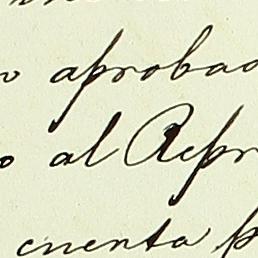 o aprobad
o al Repr
cuenta p